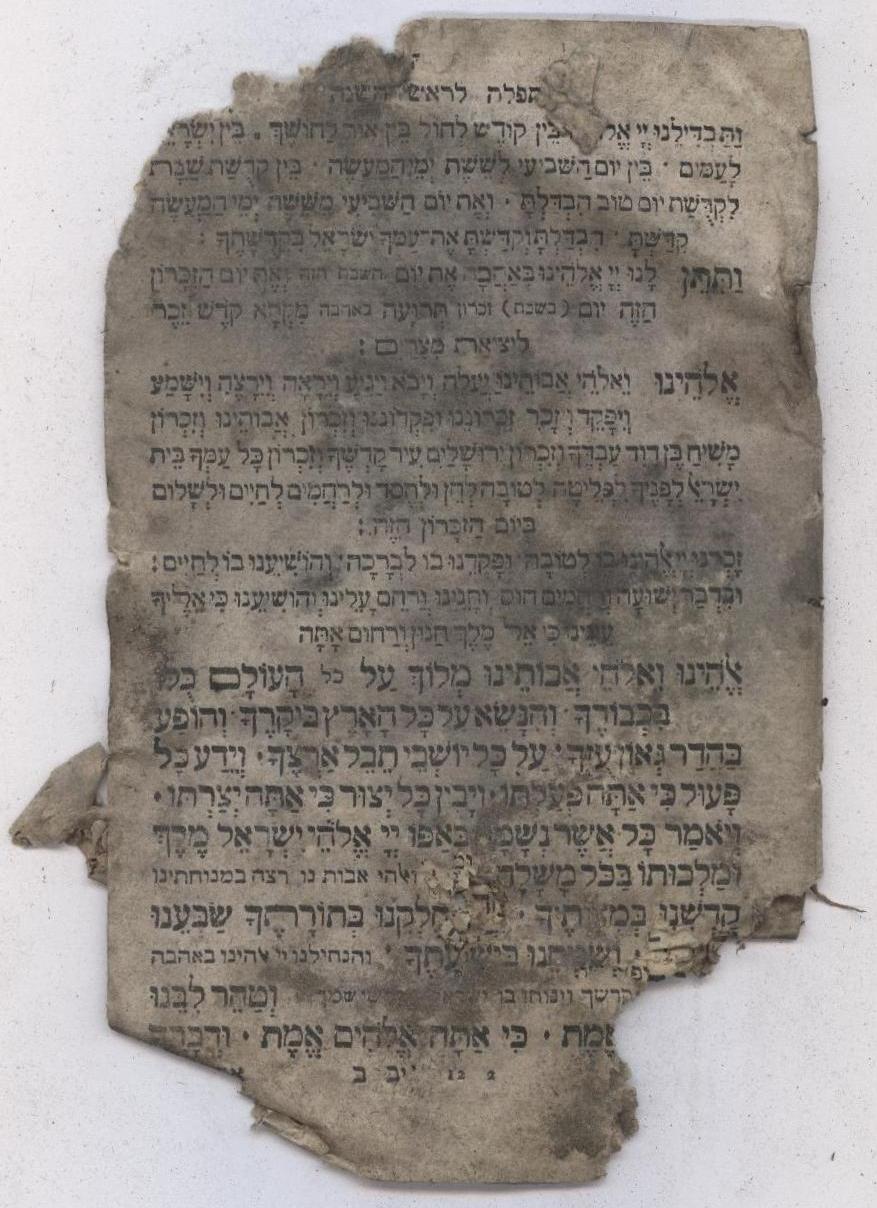 תפלה לראש השנה
וַתַּבְדִּילֵנוּ יְיָ בֵּין קוֹדֶשׁ לְחוֹל בֵּין אוֹר לְחוֹשֶׁךְ . בֵּין יִשְׂרָאֵ
לָעַמִּים . בֵּין יוֹם הַשְּׁבִיעִי לְשֵׁשֶׁת יְמֵי הַמַּעֲשֶׂה . בֵּין קְדֻשַּׁת שַׁבָּת
לִקְדֻשַּׁת יוֹם טוֹב הִבְדַּלְתָּ . וְאֶת יוֹם הַשְּׁבִיעִי מִשֵּׁשֶׁת יְמֵי הַמַּעֲשֶׂה
קִדַּשְׁתָּ . הִבְדַּלְתָּ וְקִדַּשְׁתָּ אֶת־עַמְּךָ יִשְׂרָאֵל בִּקְדֻשָּׁתֶךָ :
וַתִּתֶּן לָנוּ יְיָ אֱלֹהֵינוּ בְּאַהֲבָה אֶת יוֹם השבת הזה וְאֶת יוֹם הַזִּכָּרוֹן
הַזֶּה יוֹם (בשבת) זכרון תְּרוּעָה באהבה מִקְרָא קֹדֶשׁ זֵכֶר
לִיצִיאַת מִצְרָיִם :
אֱלֹהֵינוּ וֵאלֹהֵי אֲבוֹתֵינוּ יַעֲלֶה וְיָבֹא וְיַגִּיעַ וְיֵרָאֶה וְיֵרָצֶה וְיִשָּׁמַע
וְיִפָּקֵד וְיִזָּכֵר זִכְרוֹנֵנוּ וּפִקְדוֹנֵנוּ וְזִכְרוֹן אֲבוֹתֵינוּ וְזִכְרוֹן
מָשִׁיחַ בֶּן דָּוִד עַבְדֶּךָ וְזִכְרוֹן יְרוּשָׁלַיִם עִיר קָדְשֶׁךָ וְזִכְרוֹן כָּל עַמְּךָ בֵּית
יִשְׂרָאֵל לְפָנֶיךָ לִפְלֵיטָה לְטוֹבָה לְחֵן וּלְחֶסֶד וּלְרַחֲמִים לְחַיִּים וּלְשָׁלוֹם
בְּיוֹם הַזִּכָּרוֹן הַזֶּה :
זָכְרֵנוּ יְיָ אֱלֹהֵינוּ בּוֹ לְטוֹבָה וּפָקְדֵנוּ בוֹ לִבְרָכָה וְהוֹשִׁיעֵנוּ בוֹ לְחַיִּים :
וּבִדְבַר יְשׁוּעָה וְרַחֲמִים חוּס וְחָנֵּנוּ וְרַחֵם עָלֵינוּ וְהוֹשִׁיעֵנוּ כִּי אֵלֶיךָ
עֵינֵינוּ כִּי אֵל מֶלֶךְ חַנּוּן וְרַחוּם אָתָּה
אֱלֹהֵינוּ וֵאלֹהֵי אֲבוֹתֵינוּ מְלוֹךְ עַל כל הָעוֹלָם כֻּלּוֹ
בִּכְבוֹדֶךָ וְהִנָּשֵׂא עַל כָּל הָאָרֶץ בִּיקָרֶךָ . וְהוֹפַע
בַּהֲדַר גְּאוֹן עֻזֶּךָ . עַל כָּל יוֹשְׁבֵי תֵבֵל אַרְצֶךָ . וְיֵדַע כָּל
פָּעוּל כִּי אַתָּה פְעַלְתּוֹ . וְיָבִין כָּל יְצוּר כִּי אַתָּה יְצַרְתּוֹ .
וְיֹאמַר כָּל אֲשֶׁר נְשָׁמָה בְאַפּוֹ יְיָ אֱלֹהֵי יִשְׂרָאֵל מֶלֶךְ
וּמַלְכוּתוֹ בַּכֹּל מָשָׁלָה רצה במנוחתינו
קַדְּשֵׁנוּ בְּמִצְוֹתֶיךָ . חֶלְקֵנוּ בְּתוֹרָתֶךָ שַׂבְּעֵנוּ
וְשַׂמְּחֵנוּ בִּישׁוּעָתֶךָ . והנחילנו יי באהבה
קדשך וינוחו בו שמך וְטַהֵר לִבֵּנוּ
אֱמֶת . כִּי אַתָּה אֱלֹהִים אֱמֶת . וּדְבָרְךָ
יב ב 12 2